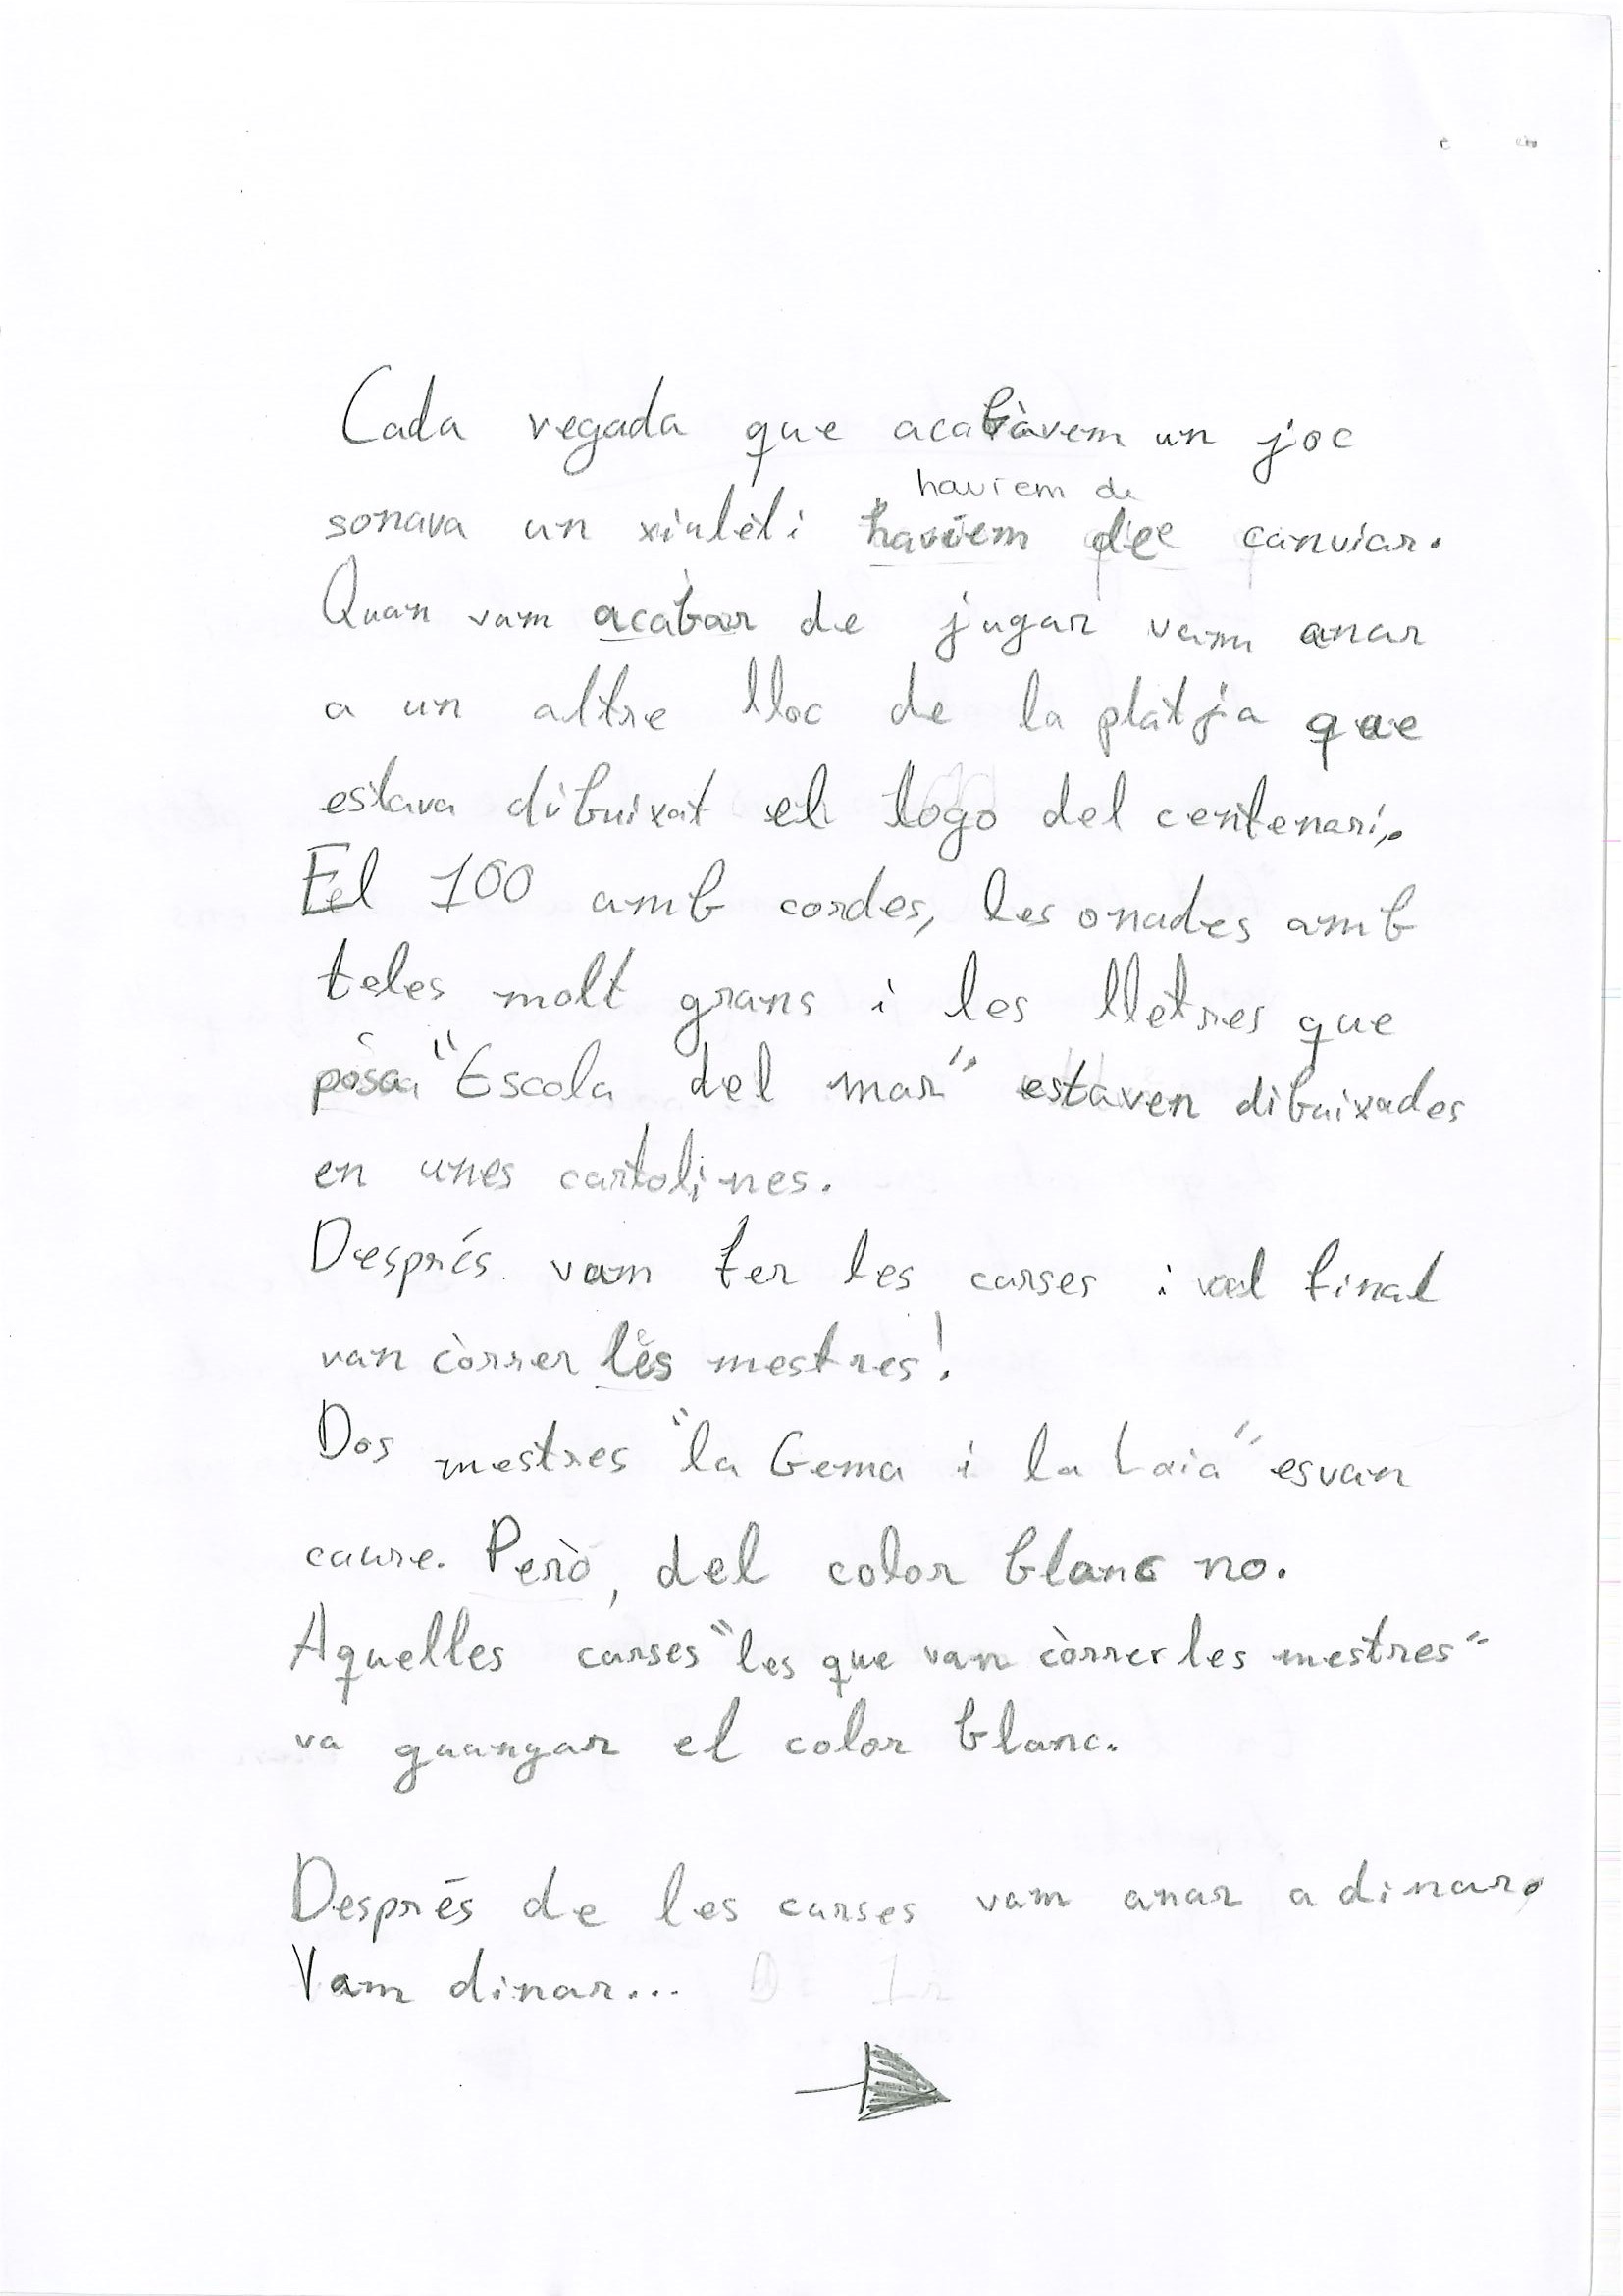 Cada vegada que acabàvem un joc
haviem de
sonava un xiulèt i haviem de canviar.
Quan vam acabar de jugar vam anar
a un altre lloc de la platja que
estava dibuixat el logo del centenari.
El 100 amb cordes, les onades amb
teles molt grans i les lletres que
posa "Escola del mar" estaven dibuixades
en unes cartolines.
Després vam fer les curses i al final
van còrrer les mestres!
Dos mestres "la Gema i la Laia" esvan
caure. Però, del color blanc no.
Aquelles curses "les que van còrrer les mestres"
va guangar el color blanc.
Després de les curses vam anar a dinar.
Vam dinar...